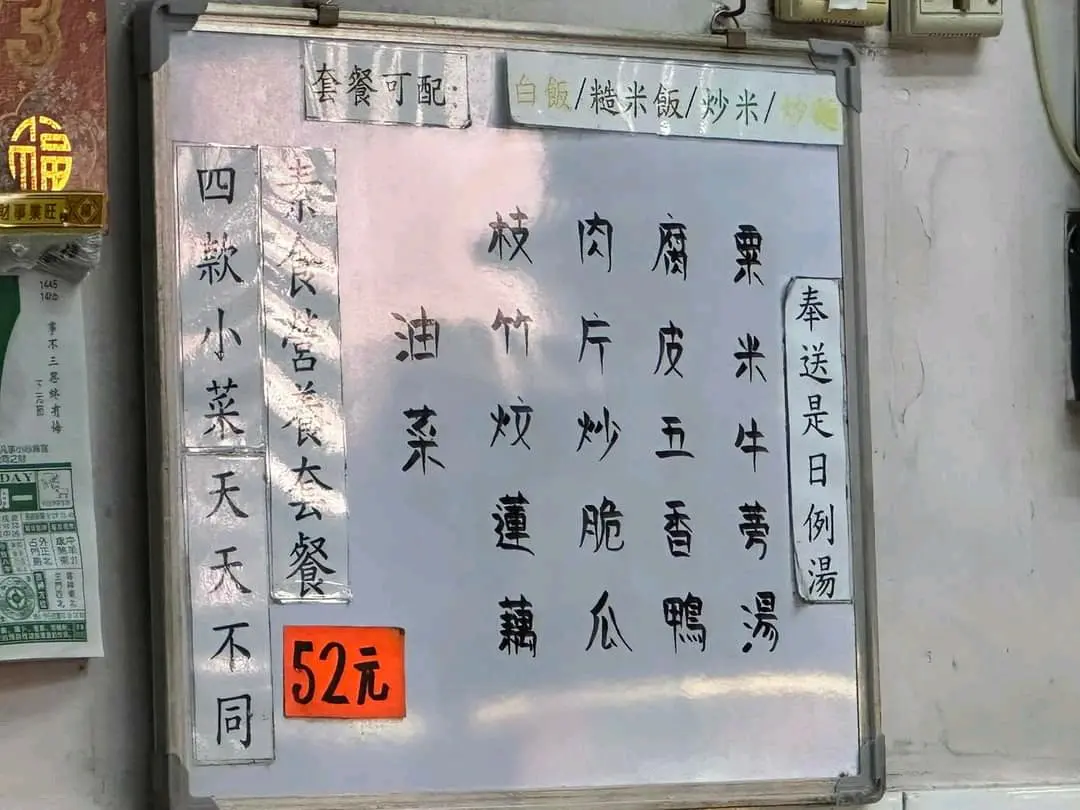 套餐可配:
白飯/糙米飯/炒米/炒麵
奉送是日例湯
粟米牛蒡湯
腐皮五香鴨
肉片炒脆瓜
枝竹炆蓮藕
油菜
素食營養套餐
52元
四款小菜天天不同
福
財事業旺
1445
事不三思終有悔
DAY